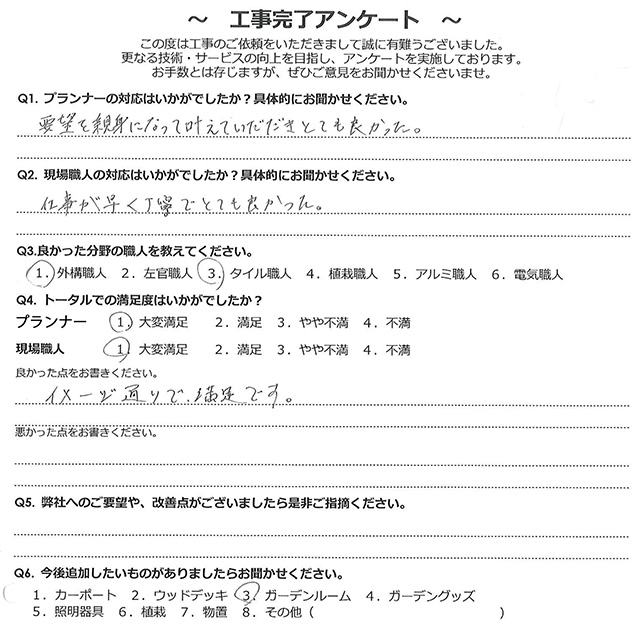 ～ 工事完了アンケート ～
この度は工事のご依頼をいただきまして誠に有難うございました。
更なる技術・サービスの向上を目指し、アンケートを実施しております。
お手数とは存じますが、ぜひご意見をお聞かせくださいませ。
Q1. プランナーの対応はいかがでしたか？具体的にお聞かせください。
要望を親身になって叶えていただきとても良かった。
Q2. 現場職人の対応はいかがでしたか？具体的にお聞かせください。
仕事が早く丁寧でとても良かった。
Q3.良かった分野の職人を教えてください。
1．外構職人 2．左官職人 3．タイル職人 4．植栽職人 5．アルミ職人 6．電気職人
Q4. トータルでの満足度はいかがでしたか？
プランナー 1．大変満足 2．満足 3．やや不満 4．不満
現場職人 1．大変満足 2．満足 3．やや不満 4．不満
良かった点をお書きください。
イメージ通りで、満足です。
悪かった点をお書きください。
Q5. 弊社へのご要望や、改善点がございましたら是非ご指摘ください。
Q6. 今後追加したいものがありましたらお聞かせください。
1．カーポート 2．ウッドデッキ 3．ガーデンルーム 4．ガーデングッズ
5．照明器具 6．植栽 7．物置 8．その他（ ）